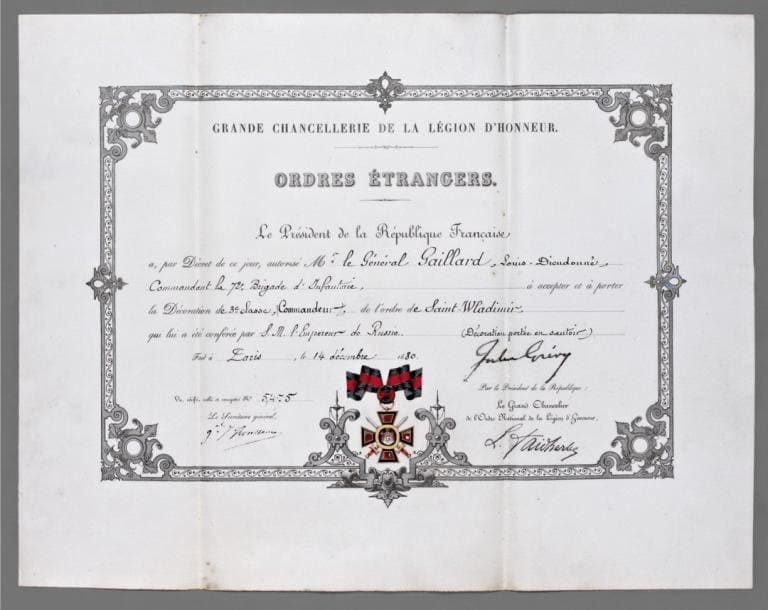 GRANDE CHANCELLERIE DE LA LÉGION D'HONNEUR.
ORDRES ÉTRANGERS.
Le Président de la République Française
a, par Décret de ce jour, autorisé Mr le Général Gaillard, Louis-Dieudonné,
Commandant la 72e Brigade d'Infanterie, à accepter et à porter
la Décoration de 3e classe, (Commandeur), de l'ordre de Saint-Wladimir,
qui lui a été conférée par S. M. l'Empereur de Russie. (Décoration portée en sautoir)
Fait à Paris, le 14 décembre 1880.
Jules Grévy
Par le Président de la République:
Vu, scellé et enregistré No 5475
Le Grand Chancelier
Le Secrétaire général,
de l'Ordre National de la Légion d'Honneur,
L. Faidherbe